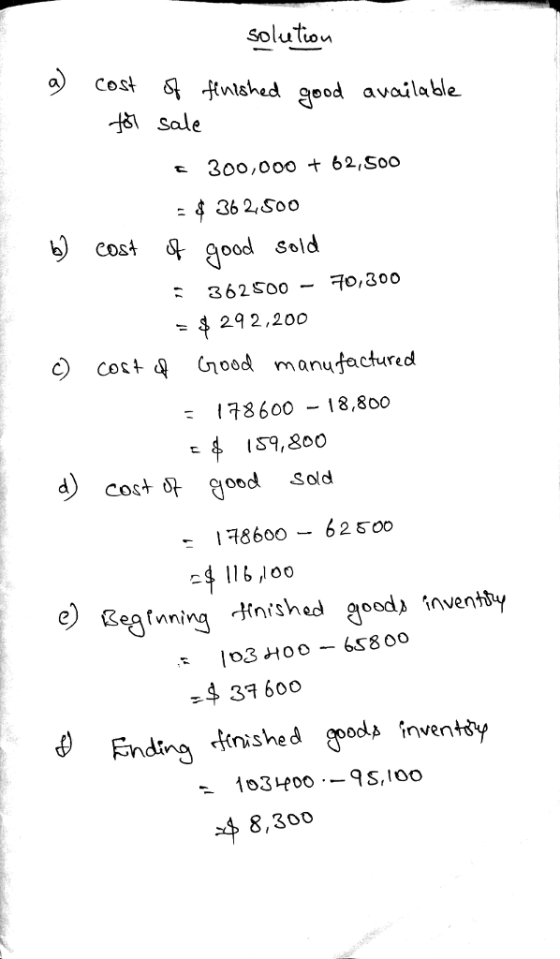 solution
a) cost of finished good available
for sale
= 300,000 + 62,500
= $ 362,500
b) cost of good sold
= 362500 - 70,300
= $ 292,200
c) cost of Good manufactured
= 178600 - 18,800
= $ 159,800
d) cost of good sold
= 178600 - 62500
= $ 116,100
e) Beginning finished goods inventory
= 103400 - 65800
= $ 37600
f) Ending finished goods inventory
= 103400 - 95,100
= $ 8,300